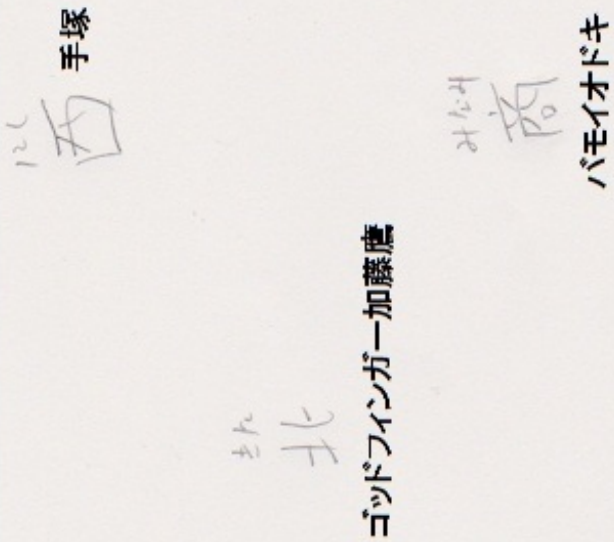 にし
西
手塚
きた
北
ゴッドフィンガー加藤鷹
みなみ
商
バモイオドキ